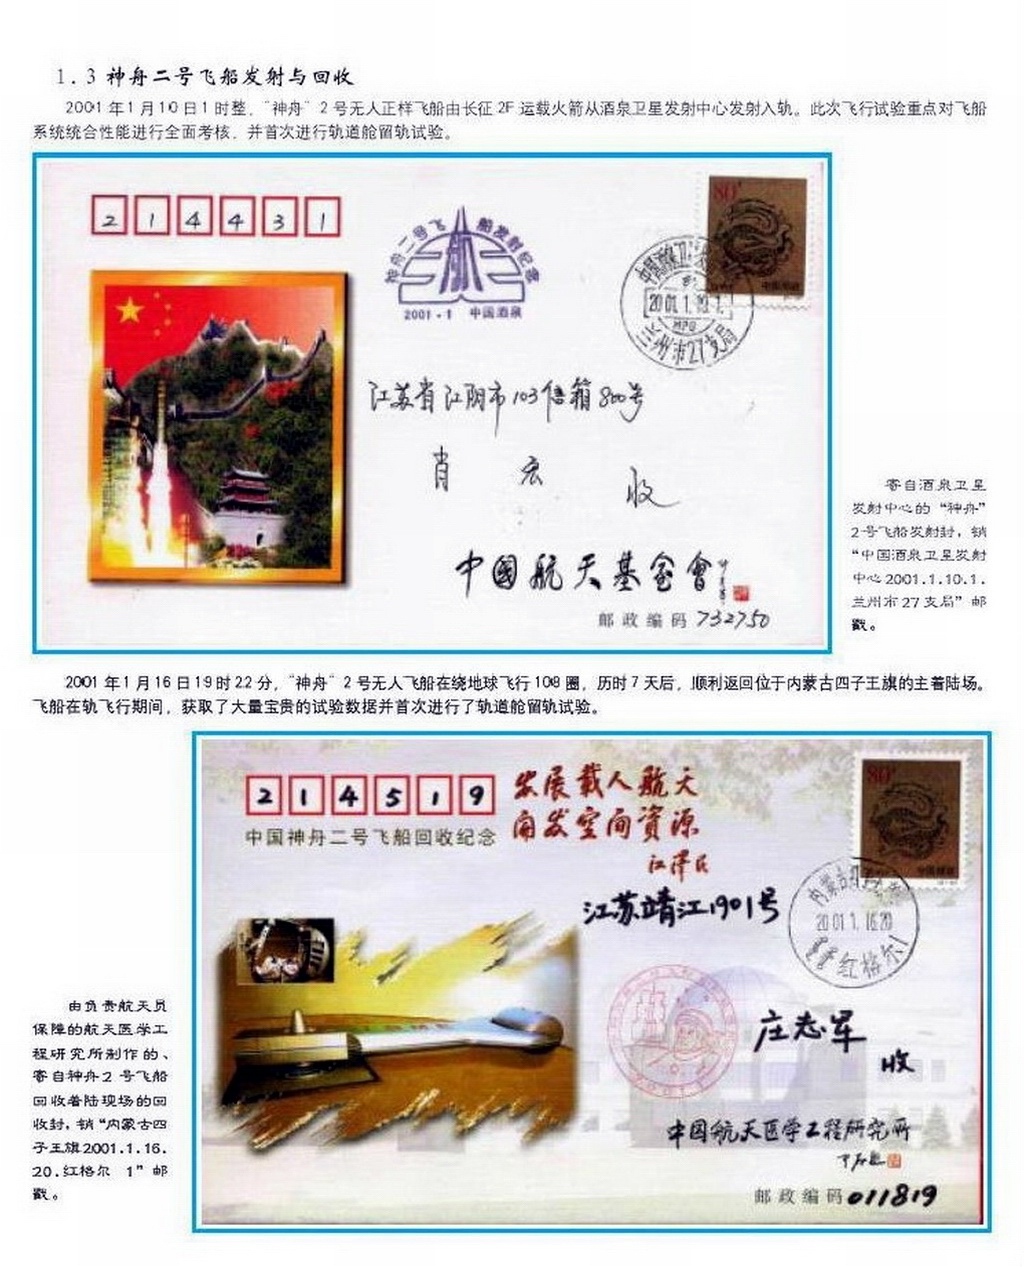 1.3 神舟二号飞船发射与回收
2001 年 1 月 10 日 1 时整，“神舟” 2 号无人正样飞船由长征 2F 运载火箭从酒泉卫星发射中心发射入轨。此次飞行试验重点对飞船
系统统合性能进行全面考核，并首次进行轨道舱留轨试验。
214431
神舟二号飞船发射纪念
2001·1 中国酒泉
80
中国邮政
2001.1.10.1.
兰州市27支局
江苏省江阴市103信箱800号
肖宏 收
中國航天基金會
邮政编码 732750
寄自酒泉卫星
发射中心的“神舟”
2号飞船发射封，销
“中国酒泉卫星发射
中心 2001.1.10.1.
兰州市 27 支局”邮
戳。
2001 年 1 月 16 日 19 时 22 分，“神舟” 2 号无人飞船在绕地球飞行 108 圈，历时 7 天后，顺利返回位于内蒙古四子王旗的主着陆场。
飞船在轨飞行期间，获取了大量宝贵的试验数据并首次进行了轨道舱留轨试验。
214519
中国神舟二号飞船回收纪念
发展载人航天
开发空间資源
江泽民
80
中国邮政
2001.1.16.20
红格尔1
江苏靖江1901号
庄志军
收
中国航天医学工程研究所
邮政编码 011819
由负责航天员
保障的航天医学工
程研究所制作的、
寄自神舟 2 号飞船
回收着陆现场的回
收封，销“内蒙古四
子王旗2001.1.16.
20.红格尔 1”邮
戳。